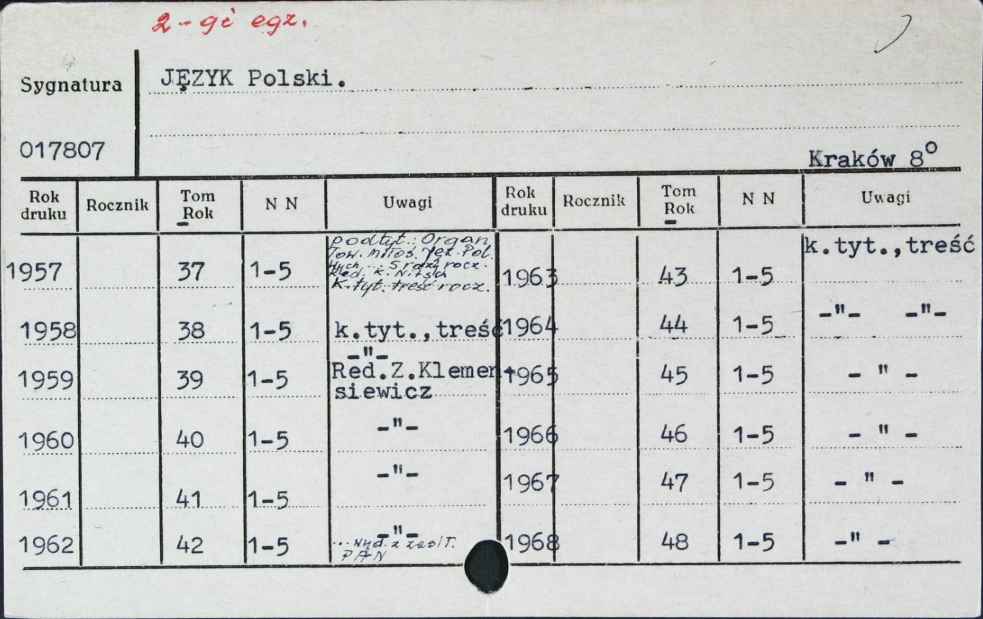 2-gi egz.
Sygnatura
JĘZYK Polski.
017807
Kraków 8°
Rok druku Rocznik Tom Rok N N Uwagi Rok druku Rocznik Tom Rok N N Uwagi
podtyt.: Organ
Tow. miłoś. Jęz. Pol.
5 razy rocz.
Red. K. Nitsch
K. tyt. treść rocz.
1957 37 1-5
1963 43 1-5 k.tyt.,treść
1958 38 1-5 k.tyt.,treść
1964 44 1-5 -"- -"-
1959 39 1-5 -"-
Red.Z.Klemen-
siewicz
1965 45 1-5 - " -
1960 40 1-5 -"-
1966 46 1-5 - " -
1961 41 1-5 -"-
1967 47 1-5 - " -
1962 42 1-5 -"-
... Wyd. z zasił.
PAN
1968 48 1-5 -" -